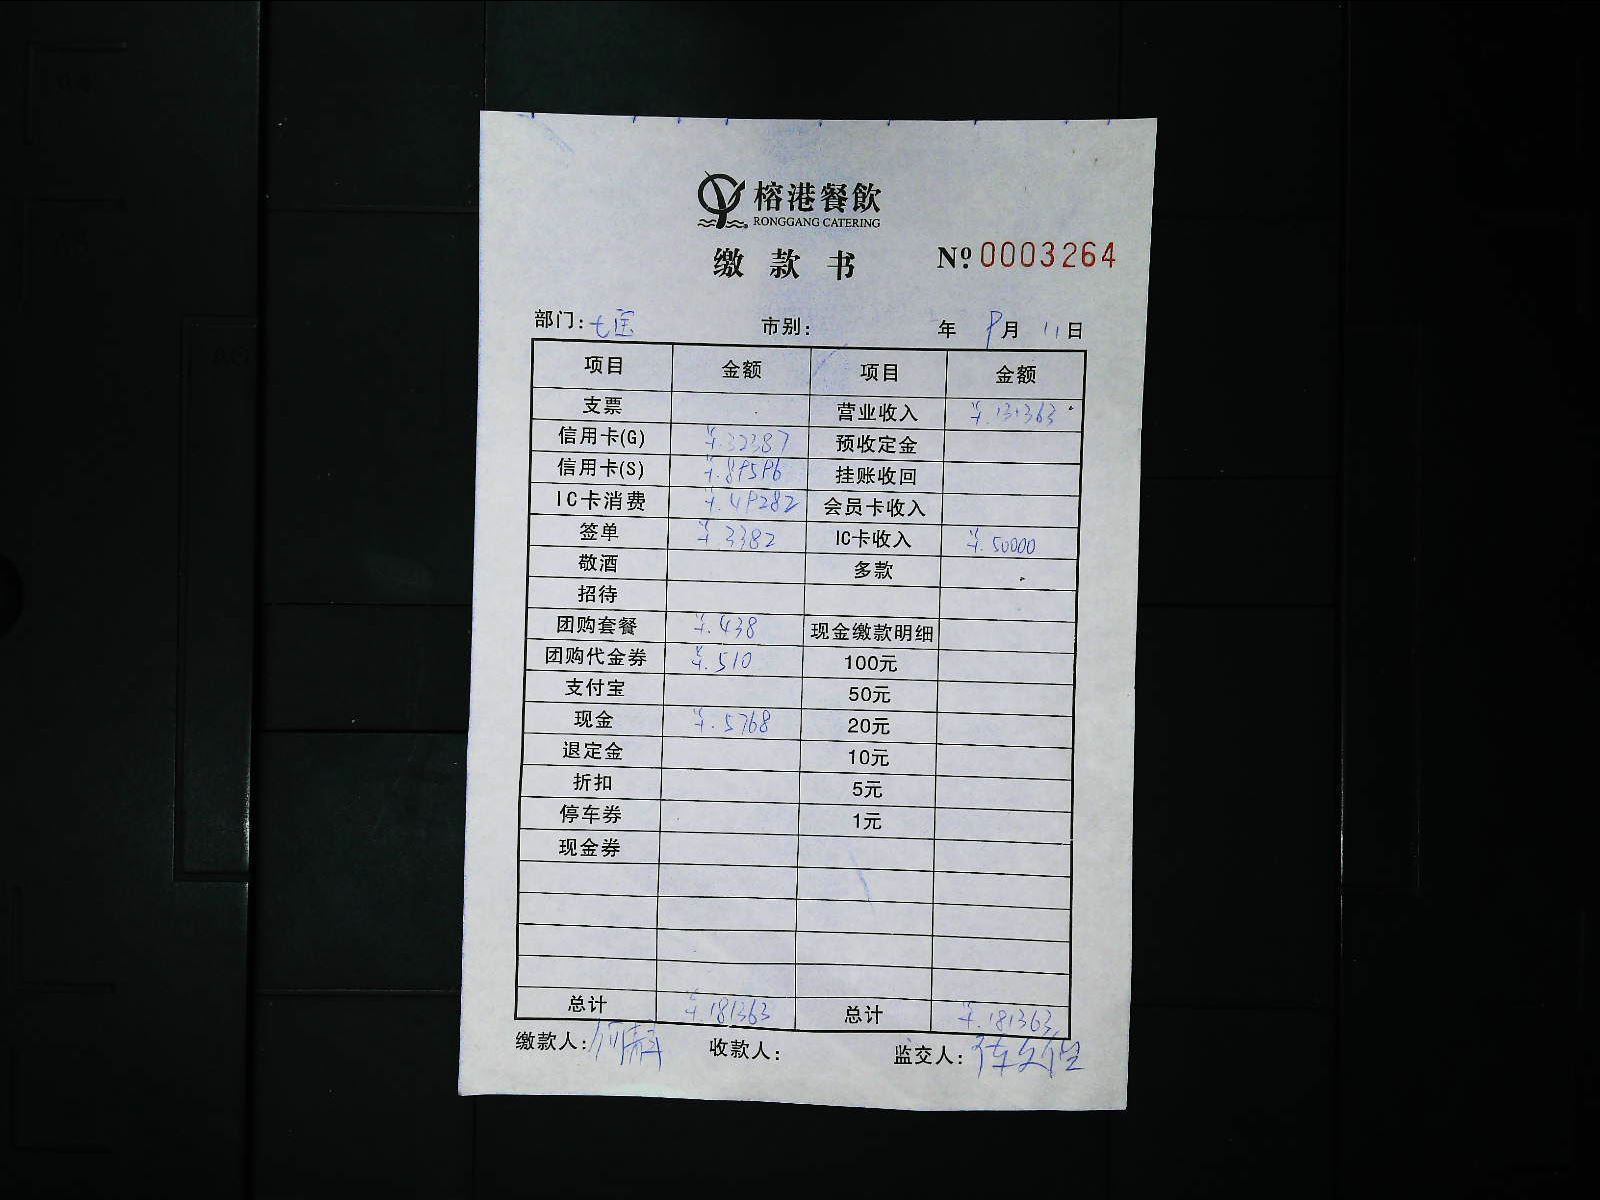 榕港餐飲
RONGGANG CATERING
缴款书 Nº 0003264
部门: 七宝 市别: 年 9月 11日
项目 金额 项目 金额
支票 营业收入 ¥.131363
信用卡(G) ¥.32387 预收定金
信用卡(S) ¥.89596 挂账收回
IC卡消费 ¥.49282 会员卡收入
签单 ¥.3382 IC卡收入 ¥.50000
敬酒 多款
招待
团购套餐 ¥.438 现金缴款明细
团购代金券 ¥.510 100元
支付宝 50元
现金 ¥.5768 20元
退定金 10元
折扣 5元
停车券 1元
现金券
总计 ¥.181363 总计 ¥.181363
缴款人: 收款人: 监交人: